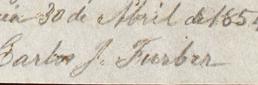 30 de Abril de 185
Carlos J. Furber